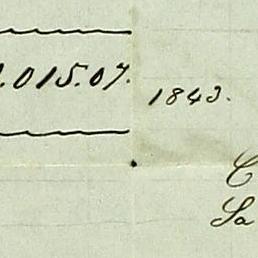 .015.07.
1843.
C
Sa